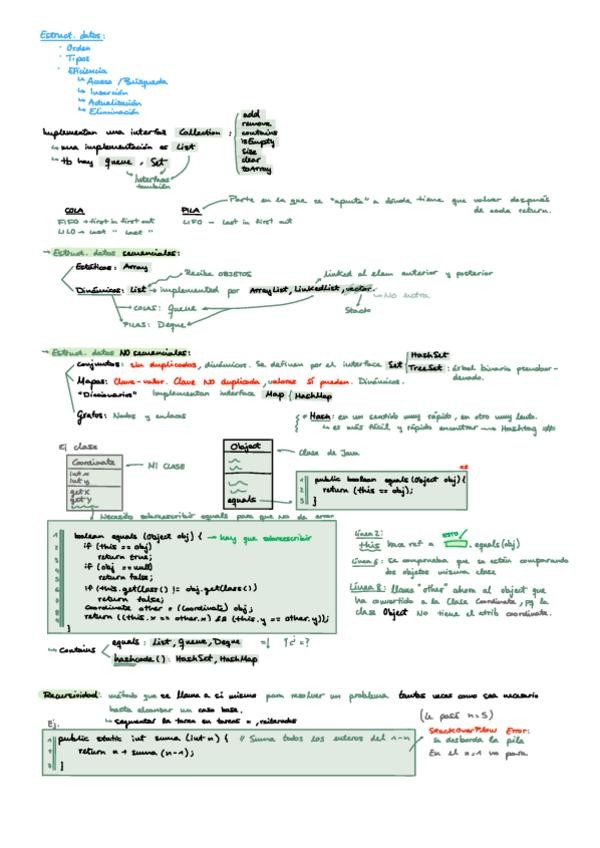 Estruct. datos:
· Orden
· Tipos
· Eficiencia
↳ Acceso / Búsqueda
↳ Inserción
↳ Actualización
↳ Eliminación
Implementan una interfaz Collection :
add
remove
contains
isEmpty
size
clear
toArray
↳ una implementación es List
↳ tb hay Queue , Set
↳ Interfaces
también
Parte en la que se "apunta" a dónde tiene que volver después
de cada return.
COLA
FIFO → first in first out
LILO → last " last "
PILA
LIFO → last in first out
→ Estruct. datos secuenciales:
Estáticas: Array
Recibe OBJETOS
linked al elem anterior y posterior
Dinámicas: List → implemented por ArrayList, LinkedList, vector.
→ No entra
Stack
→ COLAS: Queue
→ PILAS: Deque
→ Estruct. datos NO secuenciales:
Conjuntos: sin duplicados, dinámicos. Se definen por el interface Set
HashSet
TreeSet : árbol binario pseudoor-
denado.
Mapas: Clave-valor. Clave NO duplicada, valores SÍ pueden. Dinámicos.
"Diccionarios" Implementan interface Map { HashMap
Grafos: Nodos y enlaces
* Hash: en un sentido muy rápido, en otro muy lento.
↳ es más fácil y rápido encontrar un Hashtag
Ej clase
Coordinate
int x
int y
getX
getY
MI CLASE
Object
equals
Clase de Java
1 public boolean equals (Object obj) {
2 return (this == obj);
3 }
→ Necesito sobreescribir equals para que no de error
1 boolean equals (Object obj) { → hay que sobreescribir
2 if (this == obj)
3 return true;
4 if (obj == null)
5 return false;
6 if (this.getClass() != obj.getClass())
7 return false;
8 Coordinate other = (Coordinate) obj;
9 return ((this.x == other.x) && (this.y == other.y));
}
Línea 2:
ESTO
this hace ref a . equals(obj)
Línea 6: se comprueba que se estén comparando
dos objetos misma clase
Línea 8: llama "other" ahora al object que
ha convertido a la clase Coordinate, pq la
clase Object NO tiene el atrib coordinate.
↳ Contains
equals : List, Queue, Deque
hashcode() : HashSet, HashMap
Recursividad: método que se llama a si mismo para resolver un problema tantas veces como sea necesario
hasta alcanzar un caso base.
Ej.
↳ segmentar la tarea en tareas =, reiteradas
1 public static int suma (int n) { // Suma todos los enteros del 1-n
2 return n + suma (n-1);
3 }
(le pasé n=5)
StackOverFlow Error:
se desborda la pila
En el n=1 no para